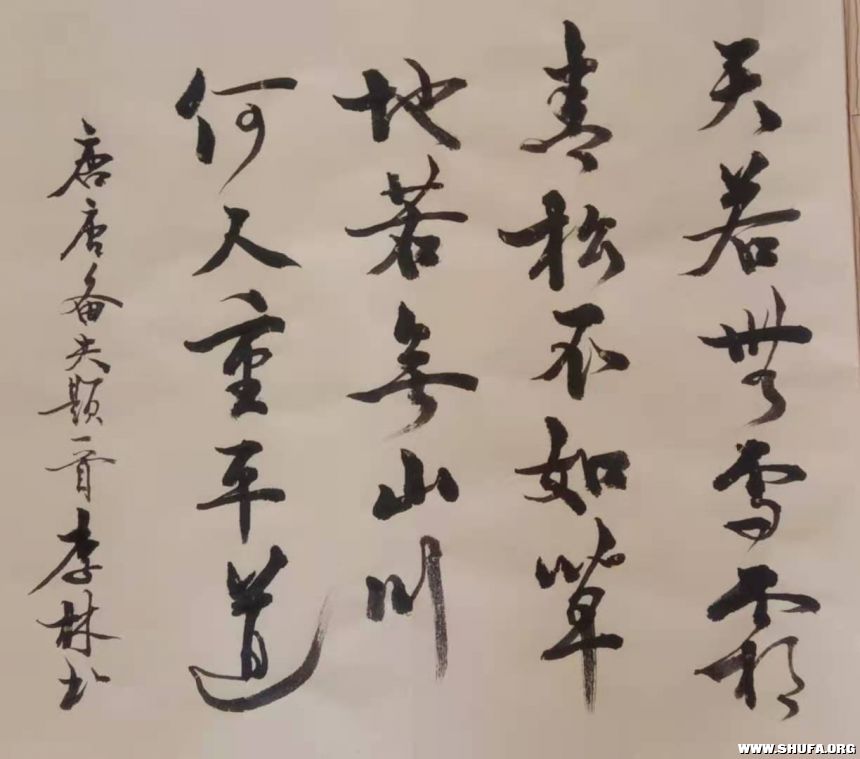 天若無雪霜
青松不如草
地若無山川
何人重平道
唐唐备失题一首李林书
WWW.SHUFA.ORG